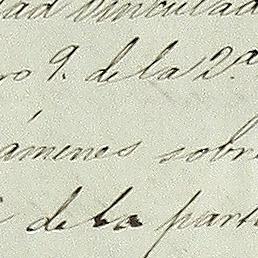 dad vinculad
ro 9.º de la 2.ª
ámenes sobre
de la part